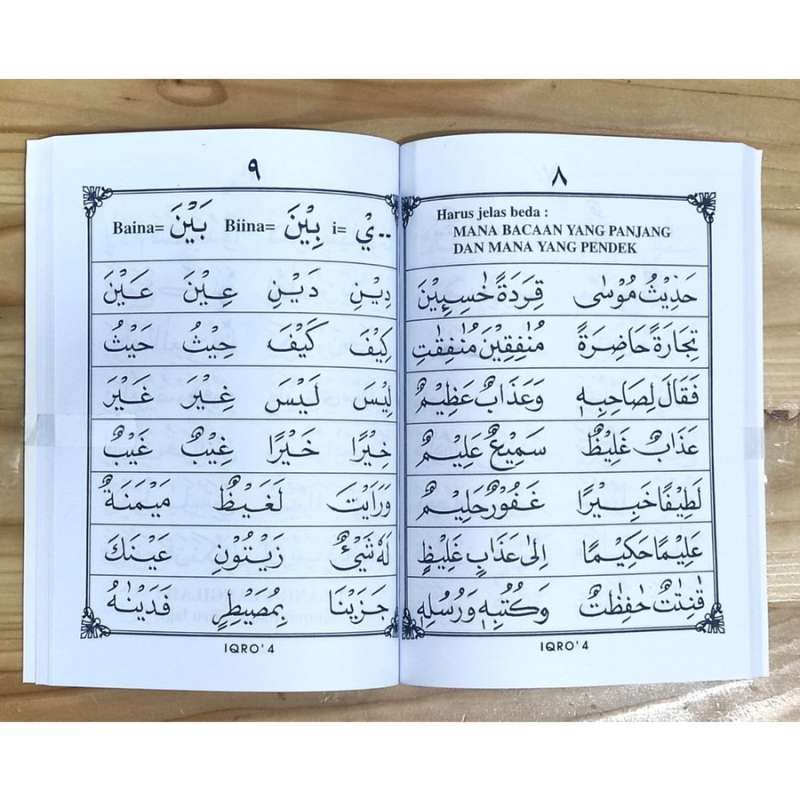 ٨
Harus jelas beda :
MANA BACAAN YANG PANJANG
DAN MANA YANG PENDEK
حَدِيْثُ مُوْسٰى قِرَدَةً خٰسِـِٕيْنَ
تِجَارَةً حَاضِرَةً مُنٰفِقِيْنَ مُنٰفِقٰتِ
فَقَالَ لِصَاحِبِهٖ وَعَذَابٌ عَظِيْمٌ
عَذَابٌ غَلِيْظٌ سَمِيْعٌ عَلِيْمٌ
لَطِيْفًا خَبِيْرًا غَفُوْرٌ حَلِيْمٌ
عَلِيْمًا حَكِيْمًا اِلٰى عَذَابٍ غَلِيْظٍ
قٰنِتٰتٌ حٰفِظٰتٌ وَكُتُبِهٖ وَرُسُلِهٖ
IQRO' 4
٩
..يْ =i بِيْنَ =Biina بَيْنَ =Baina
دِيْنِ دَيْنِ عِيْنَ عَيْنَ
كِيْفَ كَيْفَ حِيْثُ حَيْثُ
لِيْسَ لَيْسَ غِيْرَ غَيْرَ
خِيْرًا خَيْرًا غِيْبٌ غَيْبٌ
وَرَاَيْتَ لَغَيْظٌ مَيْمَنَةٌ
لَهٗ شَيْئٌ زَيْتُوْنٍ عَيْنَكَ
جَزَيْنَا بِمُصَيْطِرٍ فَدَيْنٰهُ
IQRO' 4